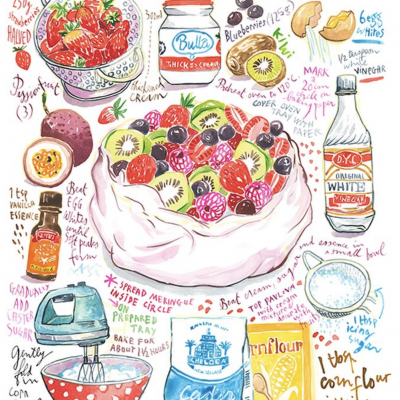 250g
strawberries
HALVED
300ml
Bulla
THICKENED CREAM
thickened
CREAM
Blueberries (125g)
Kiwi
6 egg
whites
1/2 teaspoon
white
VINEGAR
Passionfruit
(3)
Preheat oven to 120
COVER OVEN
TRAY WITH
PAPER
MARK
a
20cm
circle on
baking paper
1 tsp
VANILLA
ESSENCE
Beat
EGG
Whites
until
Soft peaks
form
ORIGINAL
WHITE
VINEGAR
GRADUALLY
ADD
CASTER
SUGAR
* SPREAD MERINGUE
INSIDE CIRCLE
ON
PREPARED
TRAY
BAKE FOR
ABOUT 1½ HOURS
Beat cream, sugar and essence in
a small bowl
TOP PAVLOVA
with cream
1 tbsp
icing
sugar
Gently
fold
in
CHELSEA
caster
rnflour
1 tbsp
cornflour